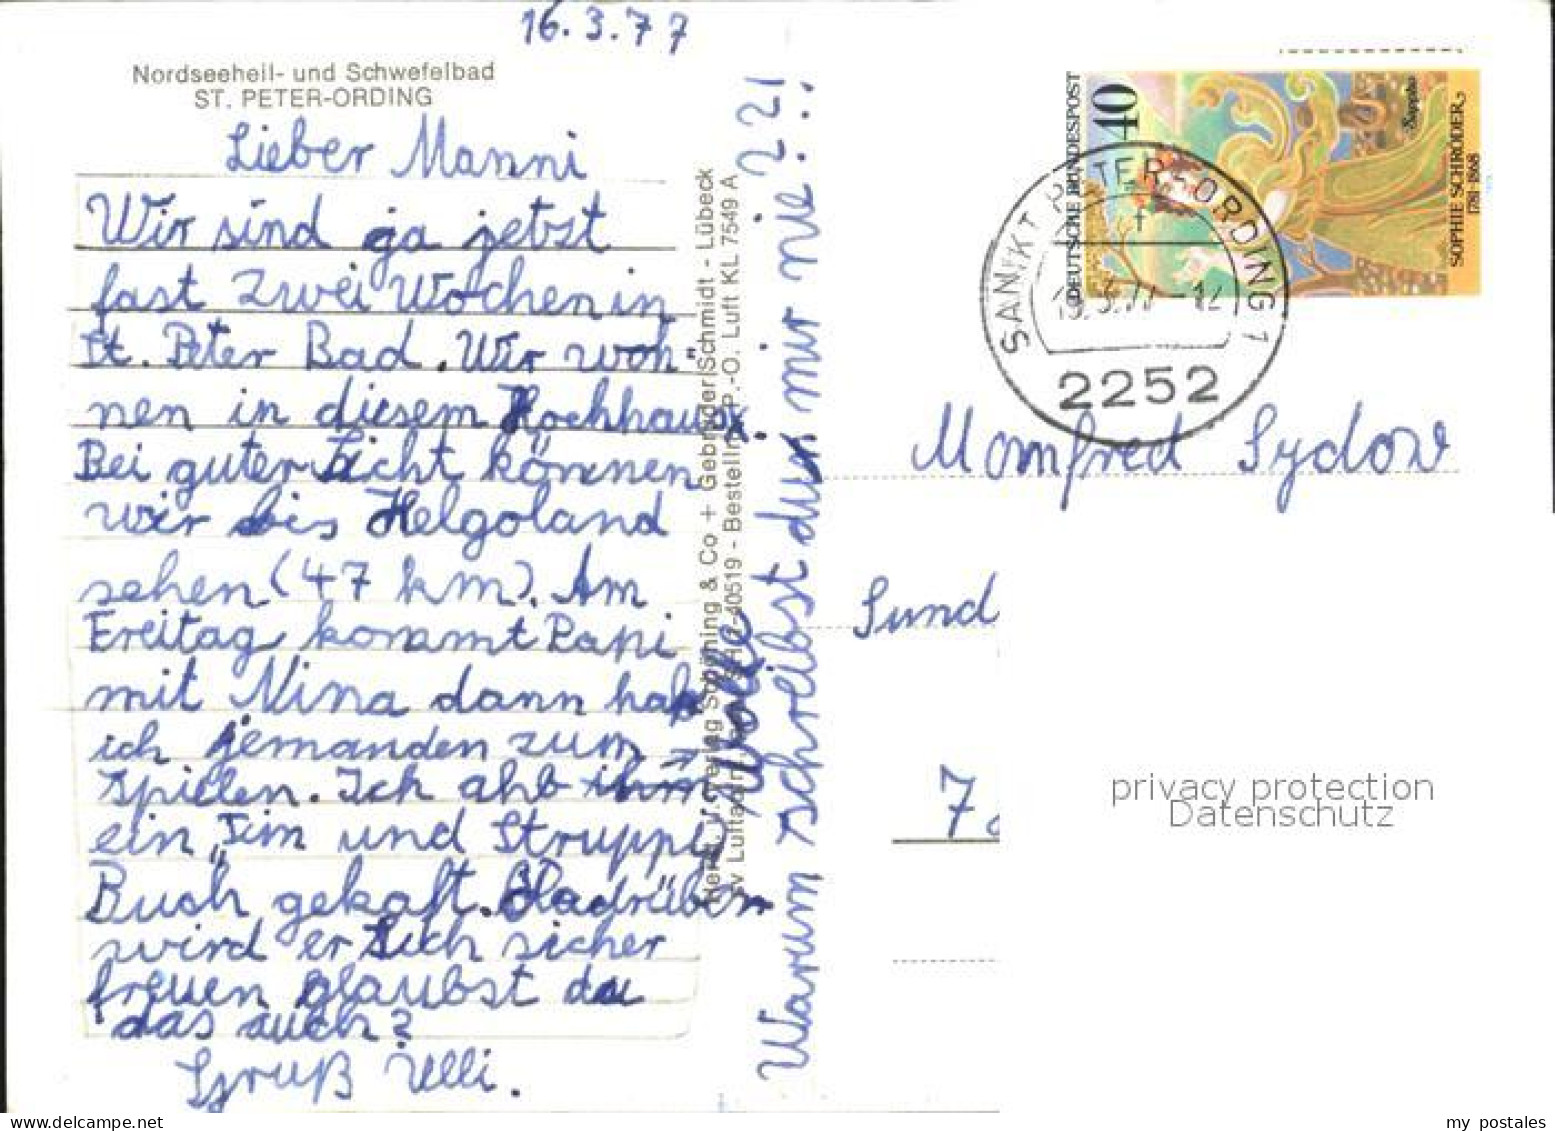 16.3.77
Nordseeheil- und Schwefelbad
ST. PETER-ORDING
Lieber Manni
Wir sind ja jetzt
fast Zwei Wochen in
St. Peter Bad. Wir woh"
nen in diesem Hochhaus x
Bei guter Sicht können
wir bis Helgoland
sehen (47 km). Am
Freitag kommt Papi
mit Nina dann hab
ich jemanden zum
spielen. Ich ahb ihm → Wolle
ein „Tim und Struppi)
Buch gekaft. Dadrüber
wird er sich sicher
freuen glaubst du
das auch?
Gruß Ulli.
Warum schreibst du mir nie? 22!!
Gebrüder Schmidt - Lübeck
40519 - Bestellnr. P.-O. Luft KL 7549 A
DEUTSCHE BUNDESPOST
40
Sappho
SOPHIE SCHRÖDER
1781-1868
SANKT PETER-ORDING 1
2252
Manfred Sydow
Sund
7
privacy protection
Datenschutz
my postales